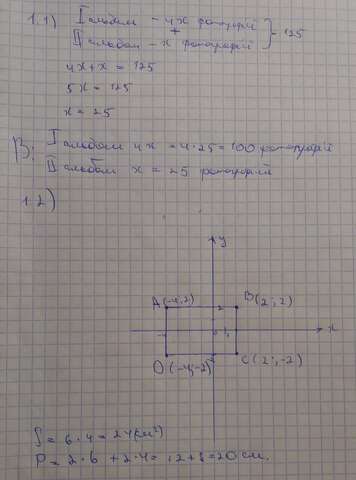 1.1) I альбом - 4x фотографій
+ - 125
II альбом - x фотографій
4x + x = 125
5x = 125
x = 25
В: I альбом 4x = 4·25 = 100 фотографій
II альбом x = 25 фотографій
1.2)
y
A(-4;2) B(2;2)
2
x
D(-4;-2) C(2;-2)
S = 6·4 = 24(см²)
P = 2·6 + 2·4 = 12+8 = 20 см.